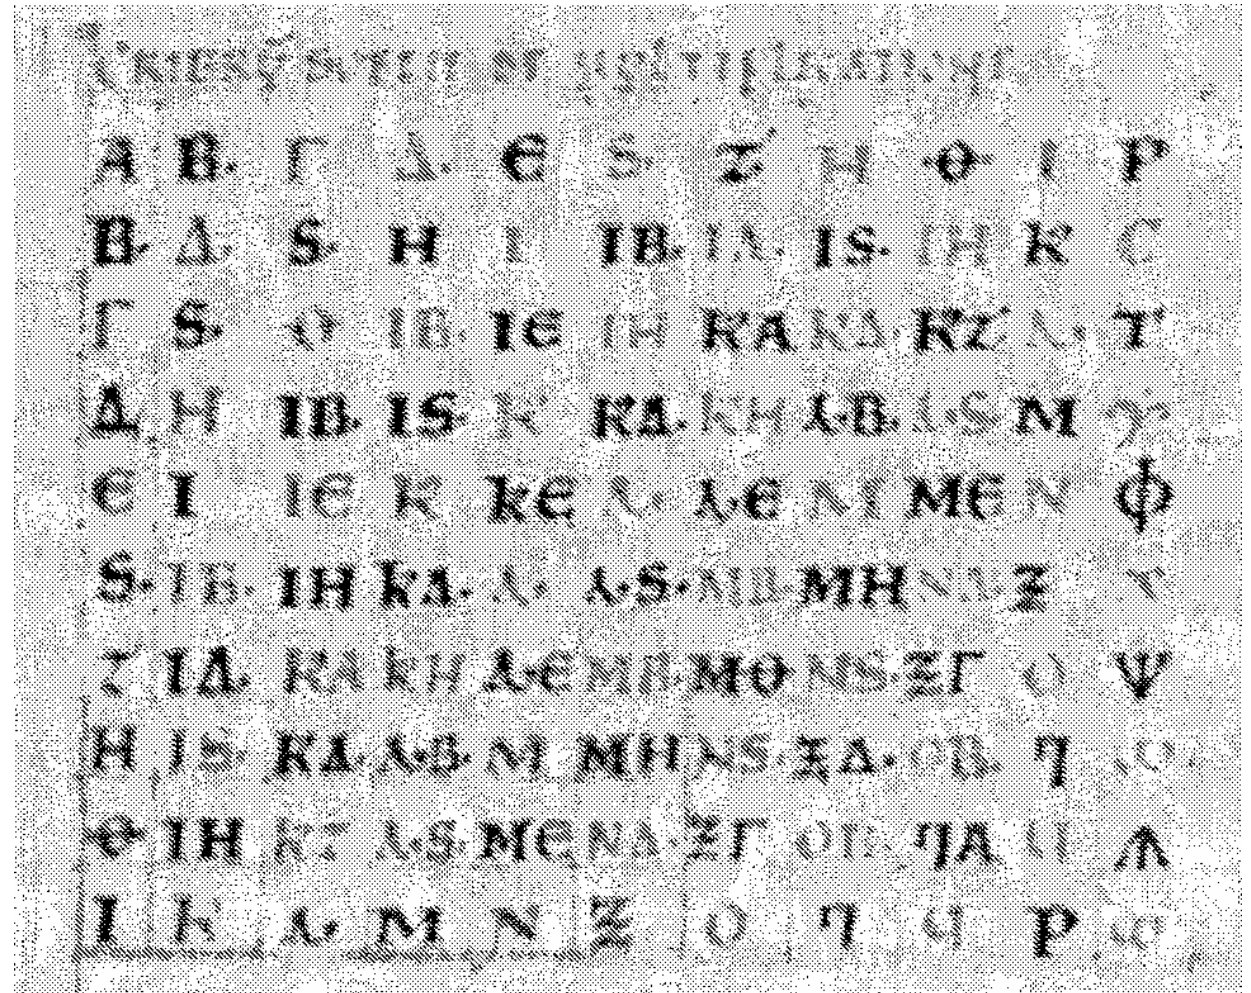 Α Β· Γ Δ· Є Ѕ· Ζ Η ·Θ· Ι Ρ
Β· Δ· Ѕ· Η Ι ΙΒ· ΙΔ· ΙЅ· ΙΗ Κ Ϲ
Γ Ѕ· Θ ΙΒ· ΙЄ ΙΗ ΚΑ ΚΔ· ΚΖ Λ· Τ
Δ· Η ΙΒ· ΙЅ· Κ ΚΔ· ΚΗ Λ·Β· Λ·Ѕ· Μ Υ
Є Ι ΙЄ Κ ΚЄ Λ· Λ·Є Μ ΜЄ Ν Φ
Ѕ· ΙΒ· ΙΗ ΚΔ· Λ· Λ·Ѕ· ΜΒ ΜΗ ΝΔ Ξ
Ζ ΙΔ· ΚΑ ΚΗ Λ·Є ΜΒ ΜΘ ΝЅ· ΞΓ Ο Ψ
Η ΙЅ· ΚΔ· Λ·Β· Μ ΜΗ ΝЅ· ΞΔ· ΟΒ· Π ·Ω·
Θ ΙΗ ΚΖ Λ·Ѕ· ΜЄ ΝΔ· ΞΓ ΟΒ· ΠΑ Ϥ ϡ
Ι Κ Λ· Μ Ν Ξ Ο Π Ϥ Ρ